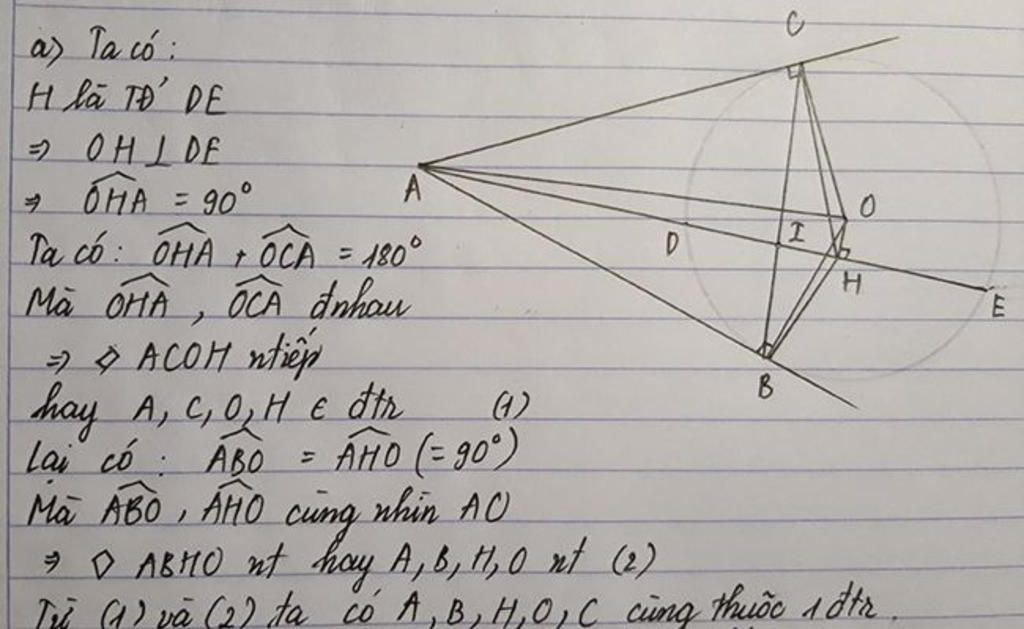 a) Ta có:
H là TĐ DE
⇒ OH ⊥ DE
⇒ \widehat{OHA} = 90°
Ta có: \widehat{OHA} + \widehat{OCA} = 180°
Mà \widehat{OHA}, \widehat{OCA} đnhau
⇒ ◇ ACOH ntiếp
hay A, C, O, H ∈ đtr (1)
Lại có: \widehat{ABO} = \widehat{AHO} (= 90°)
Mà \widehat{ABO}, \widehat{AHO} cùng nhìn AO
⇒ ◇ ABHO nt hay A, B, H, O nt (2)
Từ (1) và (2) ta có A, B, H, O, C cùng thuộc 1 đtr.
C
A
O
D
I
H
E
B